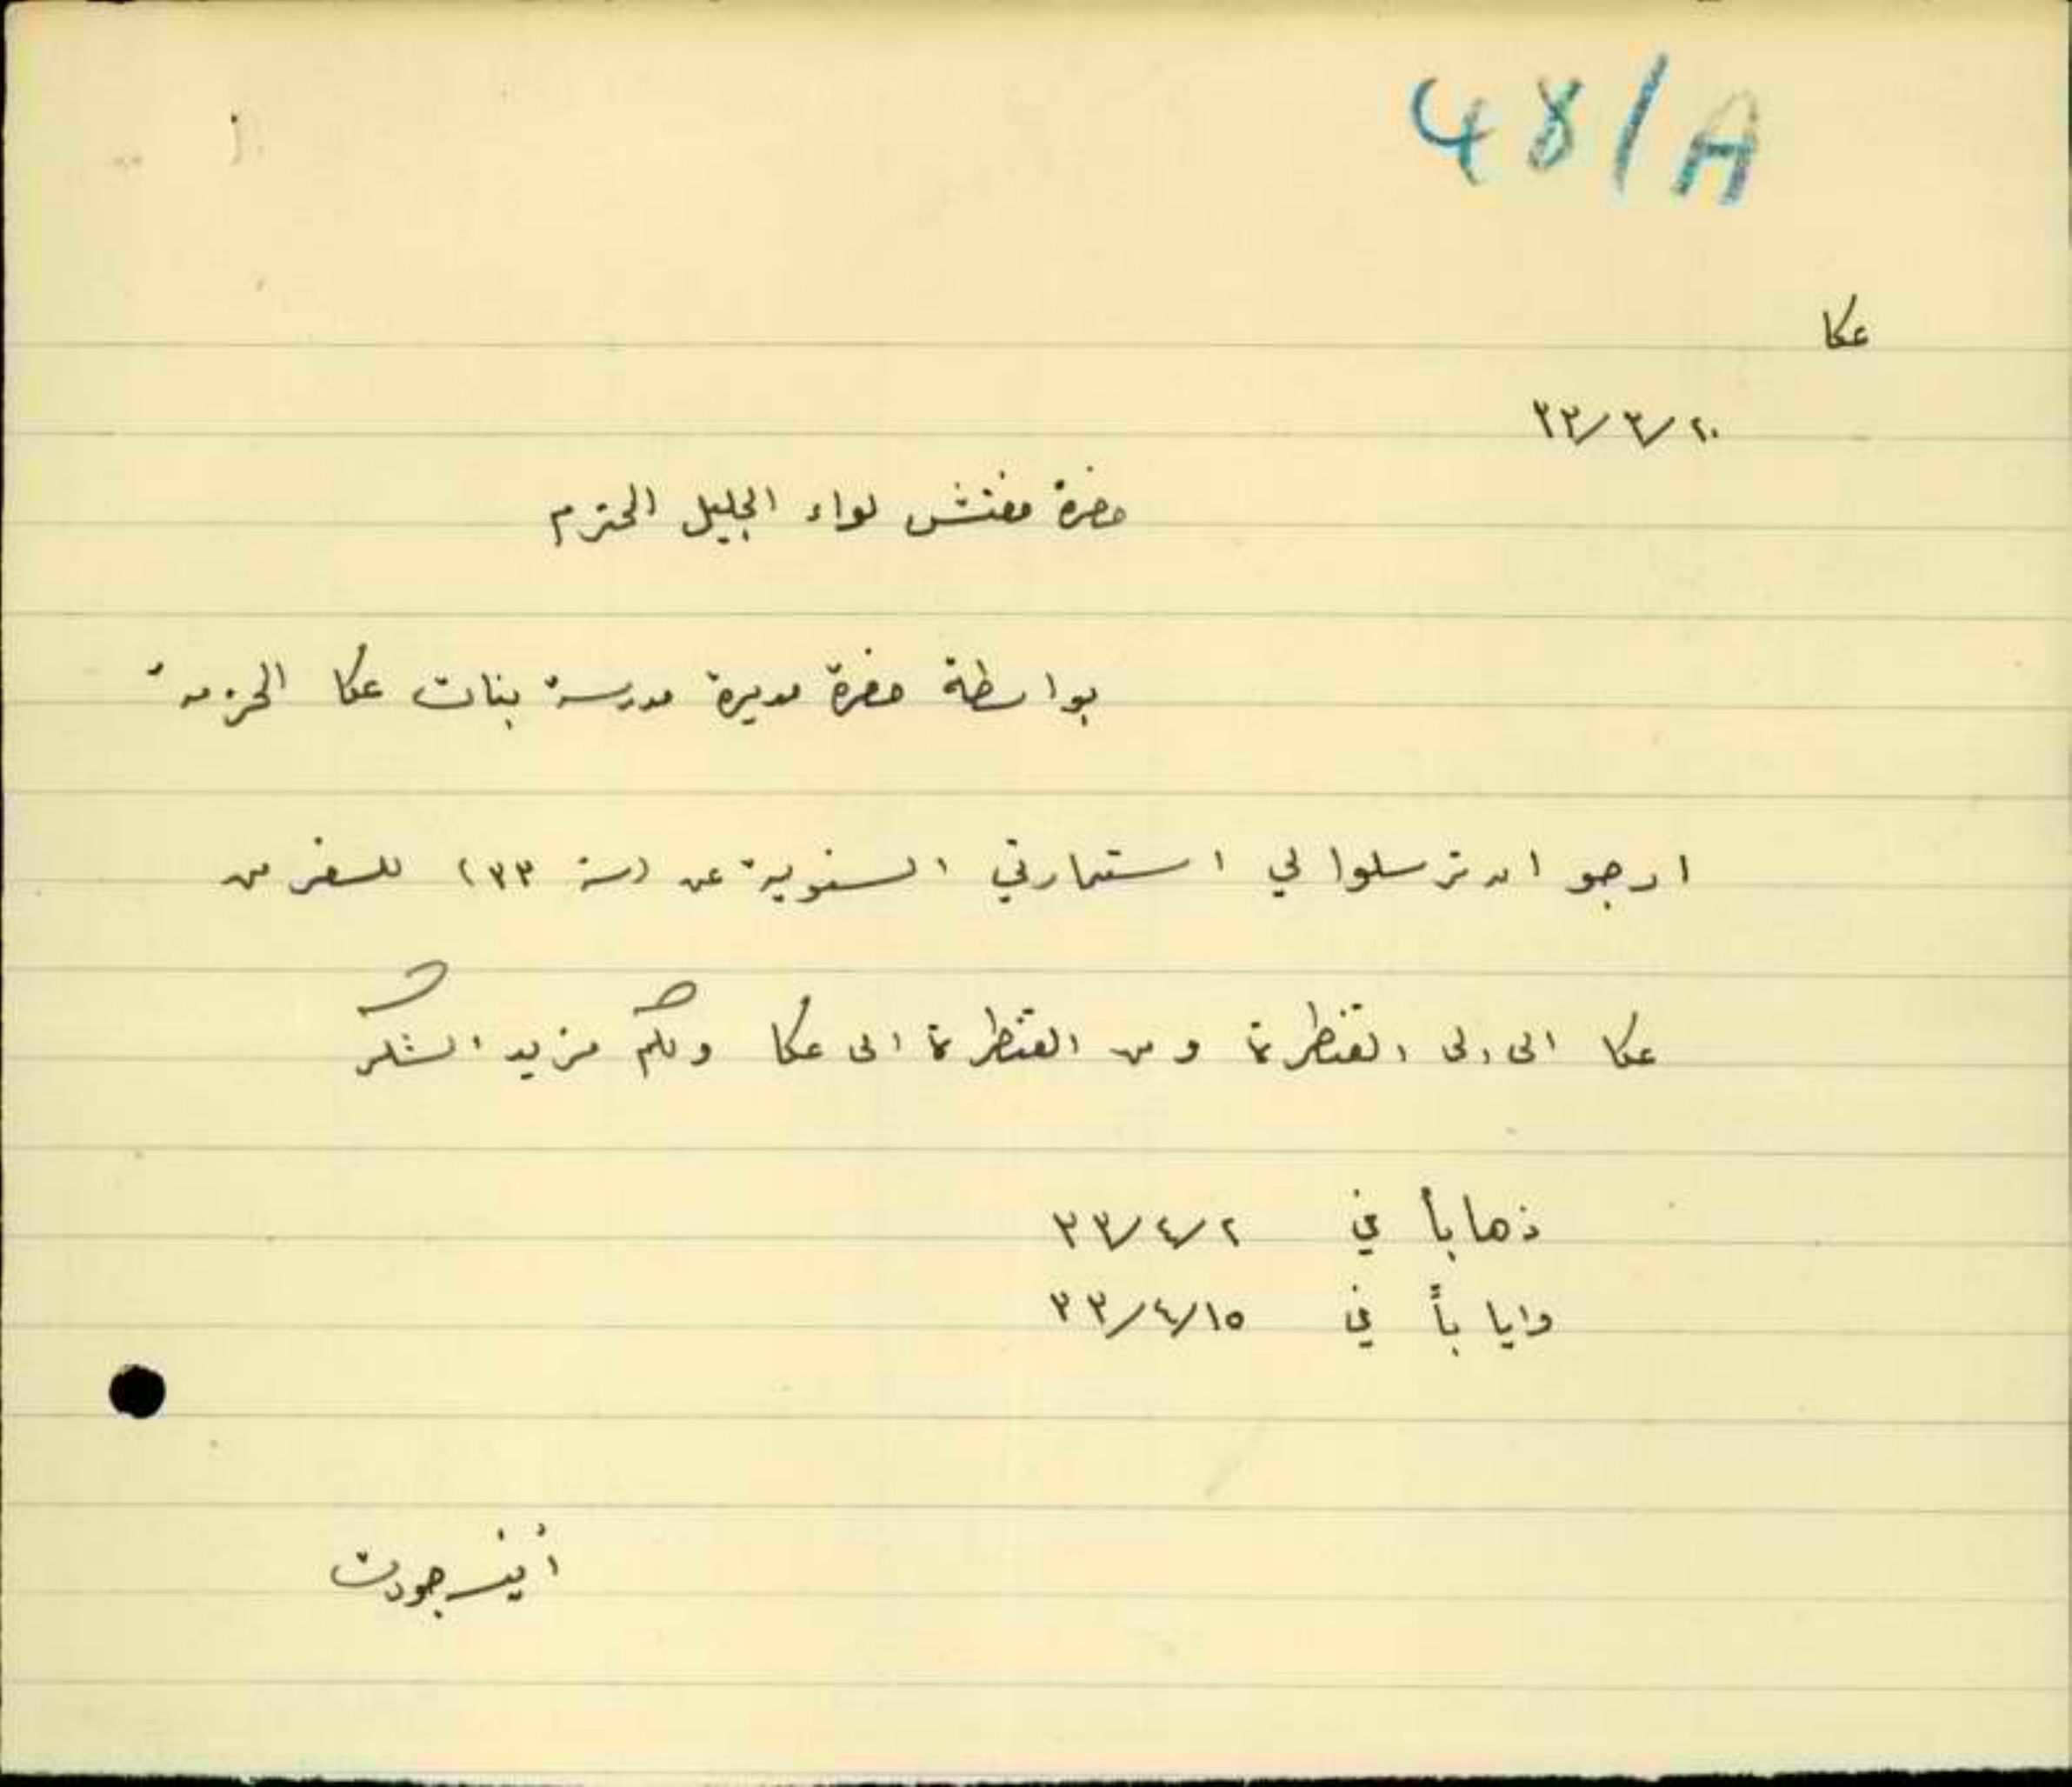 48/A
عكا
٢٠/٣/٣٣
حضرة مفتش لواء الجليل المحترم
بواسطة حضرة مديرة مدرسة بنات عكا المحترمة
ارجو ان ترسلوا لي استمارتي السنوية عن (سنة ٣٣) للسفر من
عكا الى الى القنطرة ومن القنطرة الى عكا ولكم مزيد الشكر
ذهاباً في ٢/٤/٣٣
واياباً في ١٥/٤/٣٣
جودت